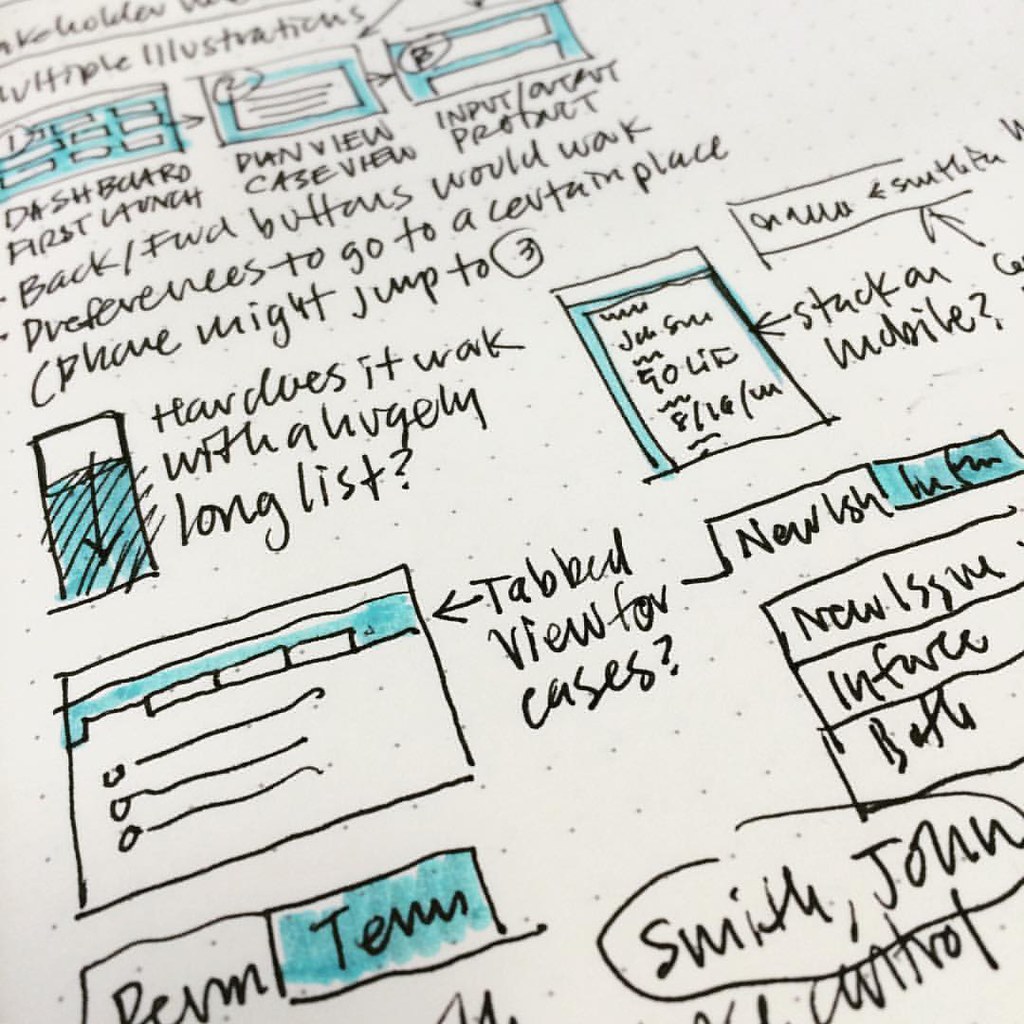 Multiple Illustrations
1
2
3
DASHBOARD
FIRST LAUNCH
PLAN VIEW
CASE VIEW
INPUT/OUTPUT
PRODUCT
· Back/Fwd buttons would work
· Preferences to go to a certain place
(Phone might jump to 3
How does it work
with a hugely
long list?
← stack on
mobile?
8/16/
← Tabbed
view for
cases?
New Issu
New Issue
Inforce
Both
Perm
Term
Smith, John
control